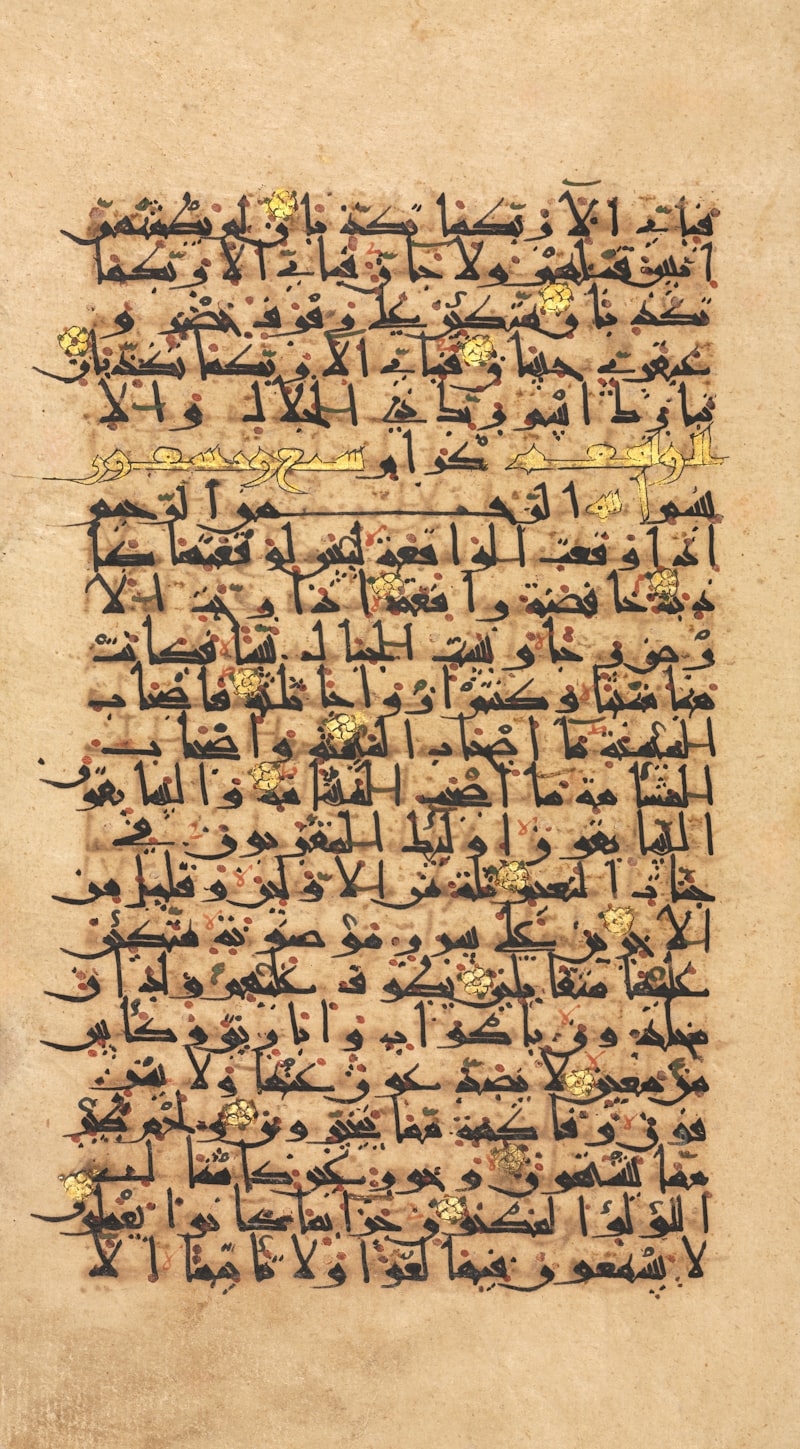 فباي الا ربكما تكذبان لم يطمثهن
انس قبلهم ولا جان فباي الا ربكما
تكذبان متكئين على رفرف خضر و
عبقري حسان فباي الا ربكما تكذبان
تبارك اسم ربك ذي الجلال والا
الواقعه كرام سبع وتسعون
بسم الله الرحمن الرحيم
اذا وقعت الواقعة ليس لوقعتها كا
ذبة خافضة رافعة اذا رجت الا
رض رجا وبست الجبال بسا فكانت
هبا منبثا وكنتم ازواجا ثلثة فاصحاب
الميمنة ما اصحاب الميمنة واصحاب
المشأمة ما اصحب المشأمة والسبقون
السبقون اولئك المقربون في
جنات النعيم ثلة من الاولين وقليل من
الاخرين على سرر موضونة متكئين
عليها متقابلين يطوف عليهم ولدان
مخلدون باكواب واباريق وكأس
من معين لا يصدعون عنها ولا ينز
فون وفاكهة مما يتخيرون ولحم طير
مما يشتهون وحور عين كامثال
اللؤلؤ المكنون جزا بما كانوا يعملون
لا يسمعون فيها لغوا ولا تأثيما الا